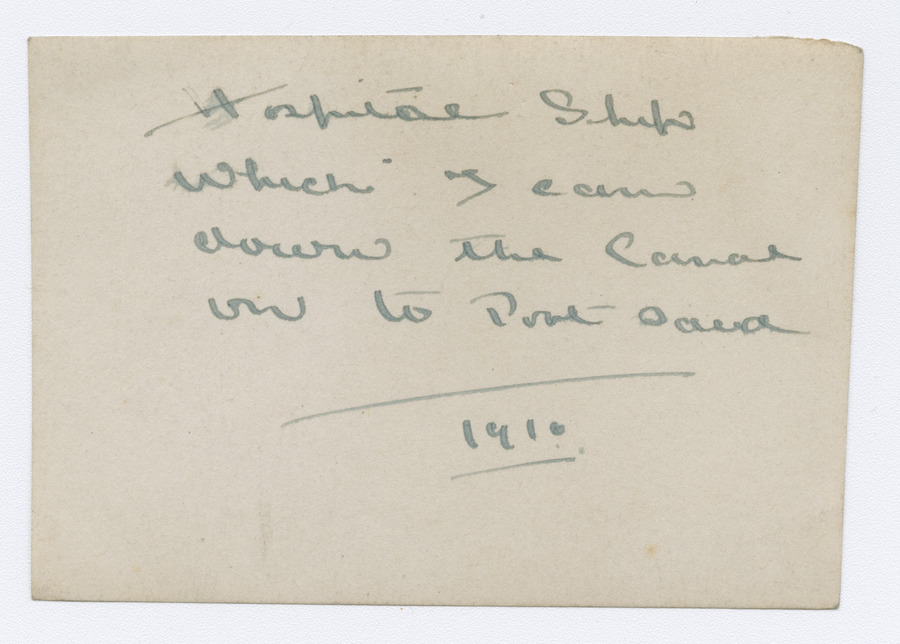 Hospital Ship
Which I came
down the Canal
in to Port Said
1916